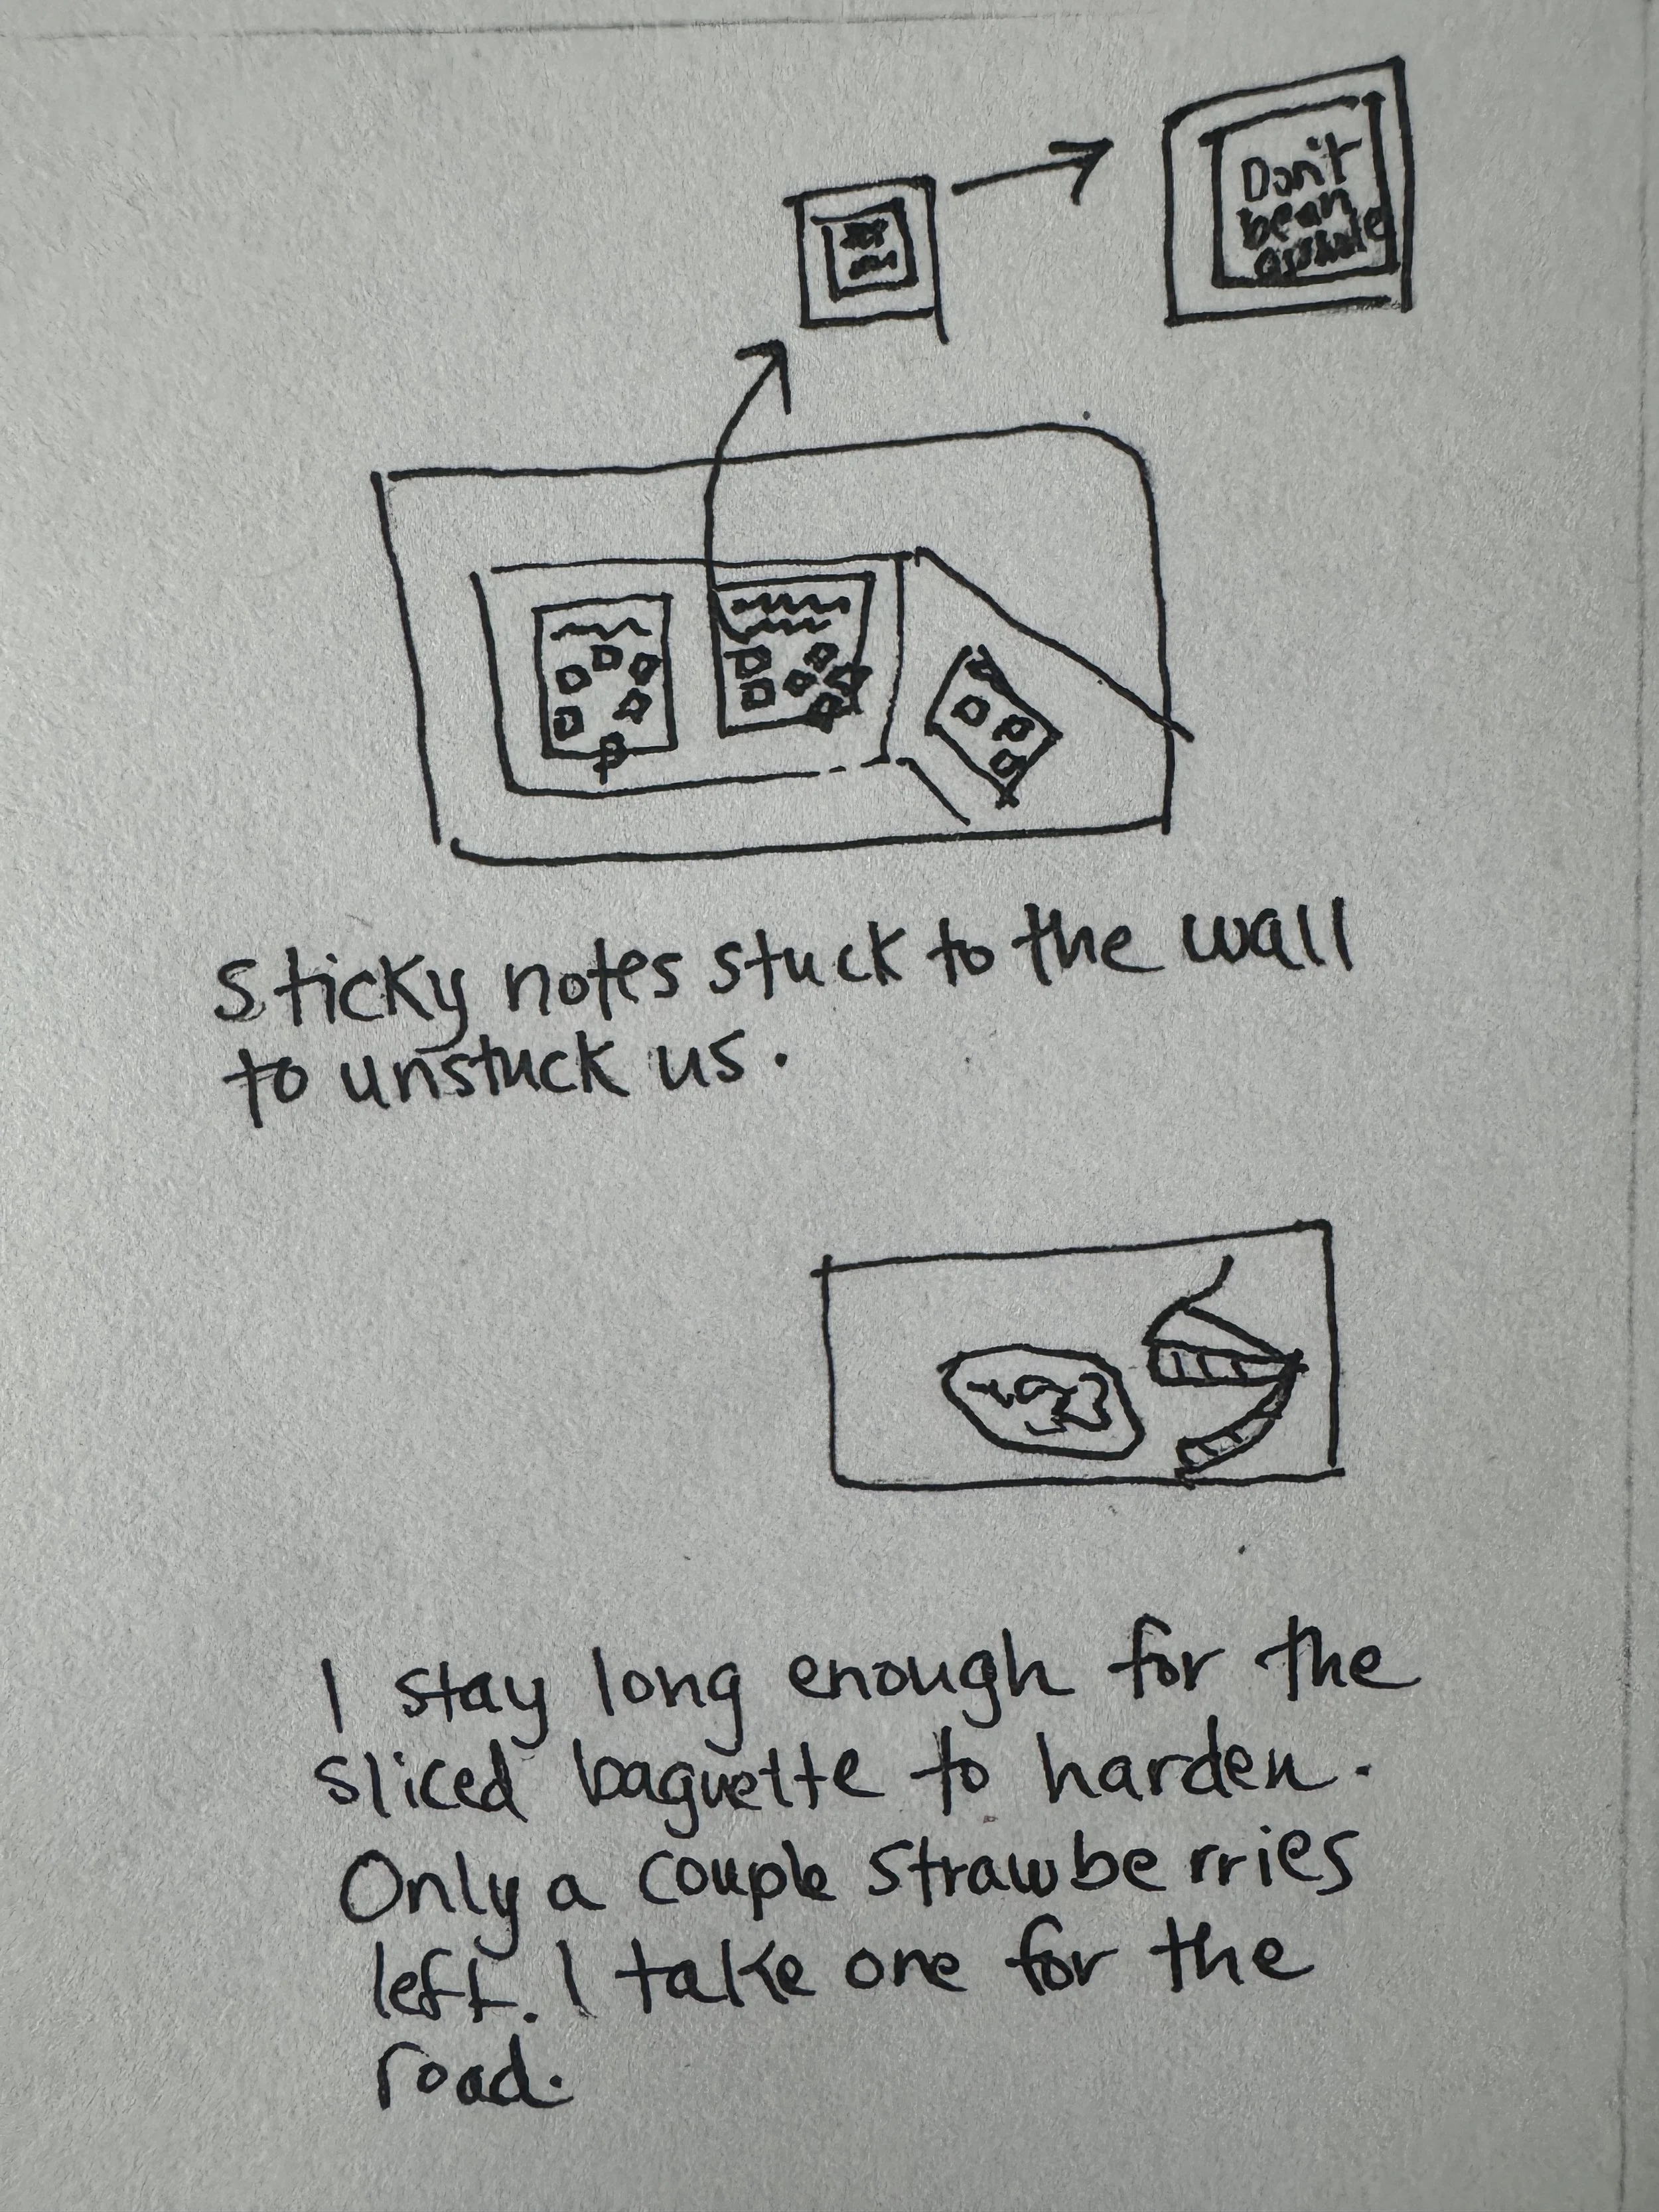 Don't
be an
asshole
Sticky notes stuck to the wall
to unstuck us.
I stay long enough for the
sliced baguette to harden.
Only a couple strawberries
left. I take one for the
road.